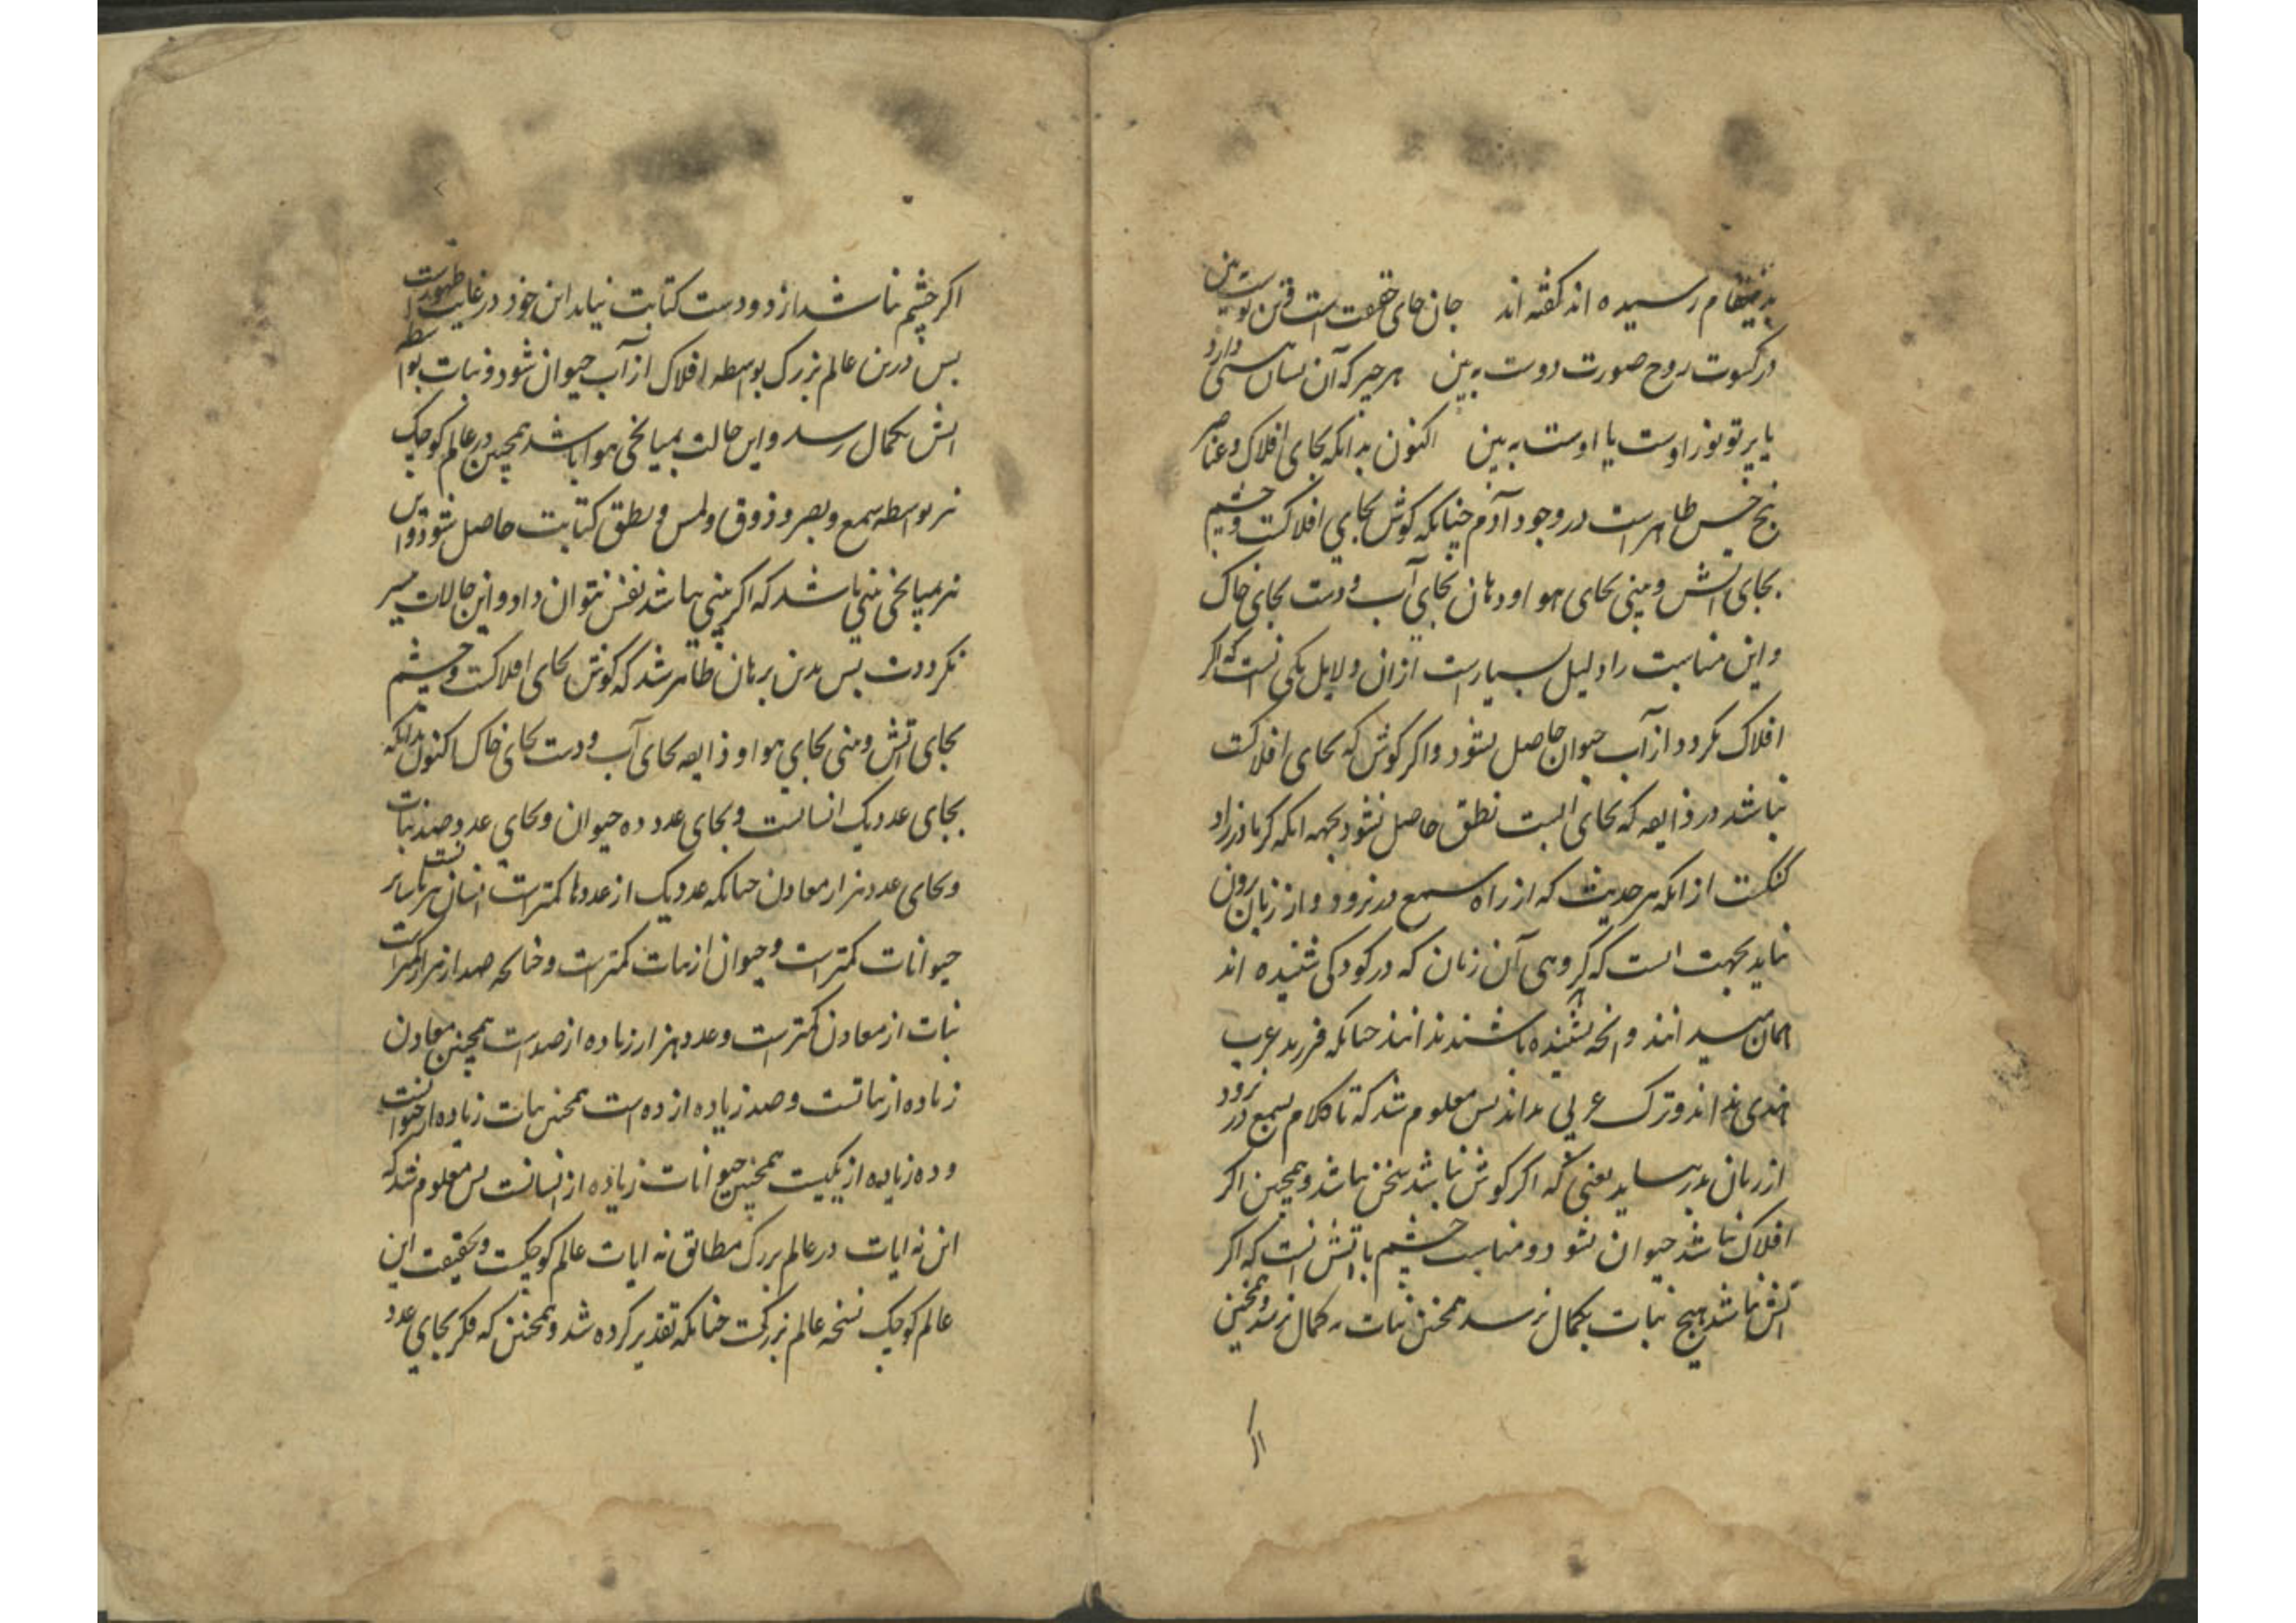 بدینمقام رسیده اند کفته اند جان جای حقیقت است قرین توست ببین
در کسوت روح صورت دوست ببین هر چیز که آن نسان هستی دارد
یا پرتو نور اوست یا اوست ببین اکنون بدانکه بجای افلاک و عناصر
پنج حس ظاهر است در وجود آدم چنانکه کوش بجای افلاکست و چشم
بجای اتش و بینی بجای هوا و دهان بجای آب و دست بجای خاک
و این مناسبت را دلیل بسیار است از ان دلایل یکی انست که اکر
افلاک نکردد از آب حیوان حاصل نشود و اکر کوش که بجای افلاکست
نباشد در ذایقه که بجای ابست نطق حاصل نشود بجهه انکه کر مادرزاد
کنکست از انکه هر حدیث که از راه سمع در نرود و از زبان برون
نیاید بجهت انست که کروهی آن زبان که در کودکی شنیده اند
همان میدانند و انچه نشنیده باشند ندانند چنانکه فرزند عرب
هندی نداند و ترک عربی نداند پس معلوم شد که تا کلام بسمع در نرود
از زبان بدر نیاید یعنی که اکر کوش نباشد سخن نباشد و همچنین اکر
افلاک نباشد حیوان نشود و مناسبت چشم با اتش انست که اکر
اتش نباشد هیچ نبات بکمال نرسد همچنین نبات به کمال نرسد و همچنین
اکر
اکر چشم نباشد از دو دست کتابت نیاید این خود در غایت ظهورست
پس درین عالم بزرک بواسطه افلاک از آب حیوان شود و نبات بواسطه
اتش بکمال رسد و این حالت بمیانجی هوا باشد همچنین در عالم کوچک
نیز بواسطه سمع و بصر و ذوق و لمس و نطق کتابت حاصل شود و این
نیز میانجی بینی باشد که اکر بینی نباشد نفس نتوان داد و این حالات میسر
نکردد پس بدین برهان ظاهر شد که کوش بجای افلاکست و چشم
بجای اتش و بینی بجای هوا و ذایقه بجای آب و دست بجای خاک اکنون بدانکه
بجای عدد یک انسانست و بجای عدد ده حیوان و بجای عدد صد نبات
و بجای عدد هزار معادن چنانکه عدد یک از عددها کمترست انسان نیز نسبت بسایر
حیوانات کمترست و حیوان از نبات کمترست و چنانچه صد از هزار کمترست
نبات از معادن کمترست و عدد هزار زیاده از صد است همچنین معادن
زیاده از نباتست و صد زیاده از ده است همچنین نبات زیاده از حیوانست
و ده زیاده از یکیست همچنین حیوانات زیاده از انسانست پس معلوم شد که
این نه ایات در عالم بزرک مطابق نه ایات عالم کوچکست و بحقیقت این
عالم کوچک نسخه عالم بزرکست چنانکه تقدیر کرده شد و همچنین که فکر بجای عدد